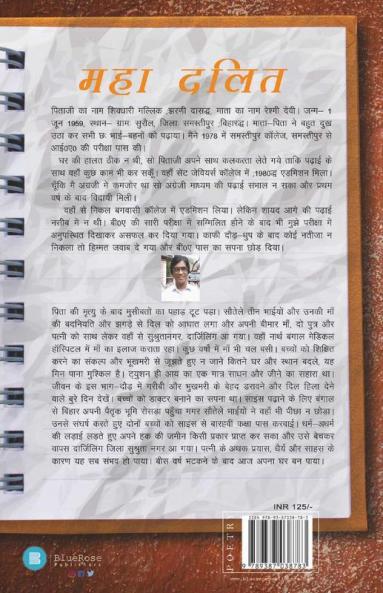 महा दलित
पिताजी का नाम शिवधारी मल्लिक झरणी दासद्ध, माता का नाम रेशमी देवी। जन्म– 1
जून 1959, स्थान– ग्राम सुरौल, जिला समस्तीपुर ;बिहारद्ध। माता–पिता ने बहुत दुख
उठा कर सभी छः भाई–बहनों को पढ़ाया। मैंने 1978 में समस्तीपुर कॉलेज, समस्तीपुर से
आई०ए० की परीक्षा पास की।
घर की हालत ठीक न थी, सो पिताजी अपने साथ कलकत्ता लेते गये ताकि पढ़ाई के
साथ वहाँ कुछ काम भी कर सकूँ। वहाँ सेंट जेवियर्स कॉलेज में ;1980द्ध एडमीशन मिला।
चूँकि मैं अंग्रेजी में कमजोर था सो अंग्रेजी माध्यम की पढ़ाई सभाल न सका और प्रथम
वर्ष के बाद विदायी मिली।
वहाँ से निकल बंगवासी कॉलेज में एडमिशन लिया। लेकिन शायद आगे की पढ़ाई
नसीब में न थी। बी०ए की सारी परीक्षा में सम्मिलित होने के बाद भी मुझे परीक्षा में
अनुपस्थित दिखाकर असफल कर दिया गया। काफी दौड़–धुप के बाद कोई नतीजा न
निकला तो हिम्मत जवाब दे गया और बी०ए पास का सपना छोड़ दिया।
पिता की मृत्यु के बाद मुसीबतो का पहाड़ टूट पड़ा। सौतेले तीन माईयों और उनकी माँ
की बदनियति और झगड़े से दिल को आघात लगा और अपनी बीमार माँ, दो पुत्र और
पत्नी को साथ लेकर वहाँ से सुश्रुतानगर, दार्जिलिंग आ गया। वहाँ नार्थ बंगाल मेडिकल
हॉस्पिटल में माँ का इलाज कराता रहा। कुछ वर्षों में माँ भी चल बसी। बच्चों को शिक्षित
करने का संकल्प और भूखमरी से जूझते हुए न जाने कितने घर और स्थान बदले, यह
गिन पाना मुश्किल है। ट्युशन ही आय का एक मात्र साधन और जीने का सहारा था।
जीवन के इस भाग–दौड़ में गरीबी और भूखमरी के बेहद डरावने और दिल हिला देने
वाले बुरे दिन देखें। बच्चों को डाक्टर बनाने का सपना था। साइंस पढ़ाने के लिए बंगाल
से बिहार अपनी पैतृक भूमि रोसडा पहुँचा मगर सौतेले माईयों ने वहाँ भी पीछा न छोड़ा।
उनसे संघर्ष करते हुए दोनों बच्चों को साइंस से बारहवी कक्षा पास करवाई। धर्म–अधर्म
की लड़ाई लडते हुए अपने हक की जमीन किसी प्रकार प्राप्त कर सका और उसे बेचकर
वापस दार्जिलिंग जिला सुश्रुता नगर आ गया। पत्नी के अथक प्रयास, धैर्य और साहस के
कारण यह सब संभव हो पाया। बीस वर्ष भटकने के बाद आज अपना घर बन पाया।
INR 125/-
POETR
BlueRose
Publishers